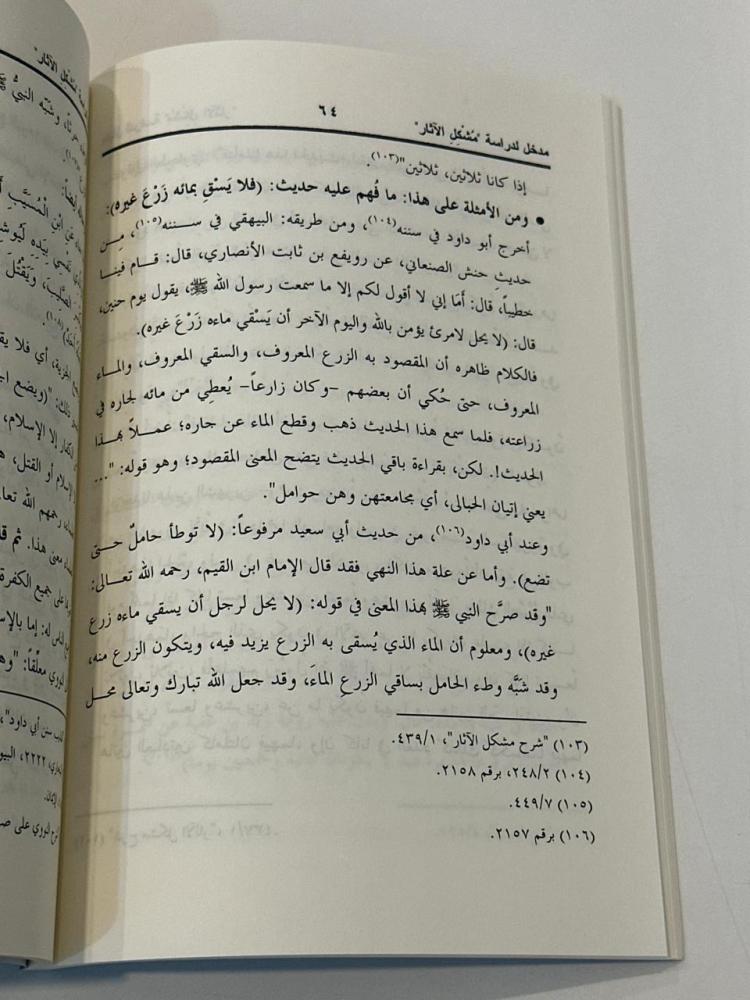 مدخل لدراسة "مُشْكِلِ الآثار"
٦٤
إذا كانا ثلاثين، ثلاثين"(١٠٣).
• ومن الأمثلة على هذا: ما فُهم عليه حديث: (فلا يَسْقِ بمائه زَرْعَ غيره):
أخرج أبو داود في سننه(١٠٤)، ومن طريقه: البيهقي في سننه(١٠٥)، مِن
حديثِ حنش الصنعاني، عن رويفع بن ثابت الأنصاري، قال: قام فينا
خطيباً، قال: أَمَا إني لا أقول لكم إلا ما سمعت رسول الله ﷺ، يقول يوم حنين،
قال: (لا يحل لامرئ يؤمن بالله واليوم الآخر أن يَسْقي ماءه زَرْعَ غيره).
فالكلام ظاهره أن المقصود به الزرع المعروف، والسقي المعروف، والماء
المعروف، حتى حُكي أن بعضهم –وكان زارعاً– يُعطي من مائه لجاره في
زراعته، فلما سمع هذا الحديث ذهب وقطع الماء عن جاره؛ عملاً بهذا
الحديث!. لكن، بقراءة باقي الحديث يتضح المعنى المقصود؛ وهو قوله: "...
يعني إتيان الحبالى، أي مجامعتهن وهن حوامل".
وعند أبي داود(١٠٦)، من حديث أبي سعيد مرفوعاً: (لا توطأ حاملٌ حتى
تضع). وأما عن علة هذا النهي فقد قال الإمام ابن القيم، رحمه الله تعالى:
"وقد صرَّح النبي ﷺ بهذا المعنى في قوله: (لا يحل لرجل أن يسقي ماءه زرع
غيره)، ومعلوم أن الماء الذي يُسقى به الزرع يزيد فيه، ويتكون الزرع منه،
وقد شبَّه وطء الحامل بساقي الزرعِ الماءَ، وقد جعل الله تبارك وتعالى محل
(١٠٣) "شرح مشكل الآثار"، ٤٣٩/١.
(١٠٤) ٢٤٨/٢، برقم ٢١٥٨.
(١٠٥) ٤٤٩/٧.
(١٠٦) برقم ٢١٥٧.